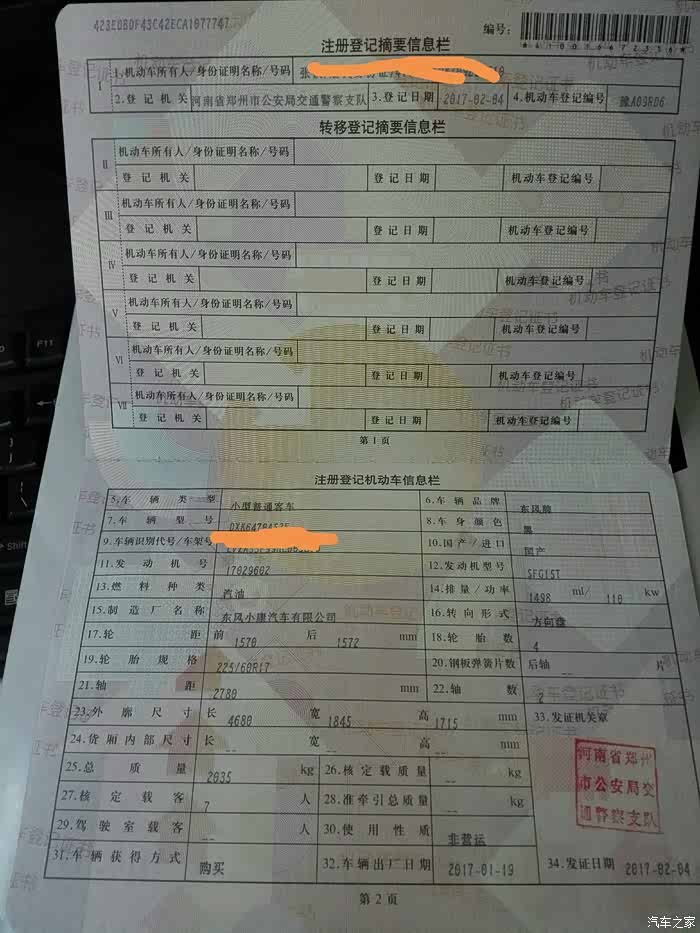 423E0BDF43C42ECA1077747
编号:
注册登记摘要信息栏
I 1.机动车所有人/身份证明名称/号码 张
2.登记机关 河南省郑州市公安局交通警察支队 3.登记日期 2017-02-04 4.机动车登记编号 豫A09R06
转移登记摘要信息栏
II 机动车所有人/身份证明名称/号码
登记机关 登记日期 机动车登记编号
III 机动车所有人/身份证明名称/号码
登记机关 登记日期 机动车登记编号
IV 机动车所有人/身份证明名称/号码
登记机关 登记日期 机动车登记编号
V 机动车所有人/身份证明名称/号码
登记机关 登记日期 机动车登记编号
VI 机动车所有人/身份证明名称/号码
登记机关 登记日期 机动车登记编号
VII 机动车所有人/身份证明名称/号码
登记机关 登记日期 机动车登记编号
第1页
注册登记机动车信息栏
5.车辆类型 小型普通客车 6.车辆品牌 东风牌
7.车辆型号 8.车身颜色 黑
9.车辆识别代号/车架号 10.国产/进口 国产
11.发动机号 17029602 12.发动机型号 SFG15T
13.燃料种类 汽油 14.排量/功率 1498 ml/ 110 kw
15.制造厂名称 东风小康汽车有限公司 16.转向形式 方向盘
17.轮距 前 1570 后 1572 mm 18.轮胎数 4
19.轮胎规格 225/60R17 20.钢板弹簧片数 后轴 -- 片
21.轴距 2780 mm 22.轴数 2
23.外廓尺寸 长 4680 宽 1845 高 1715 mm 33.发证机关章
24.货厢内部尺寸 长 -- 宽 -- 高 -- mm
河南省郑州
市公安局交
通警察支队
25.总质量 2035 kg 26.核定载质量 -- kg
27.核定载客 7 人 28.准牵引总质量 -- kg
29.驾驶室载客 -- 人 30.使用性质 非营运
31.车辆获得方式 购买 32.车辆出厂日期 2017-01-19 34.发证日期 2017-02-04
第2页
汽车之家
F11
Shift